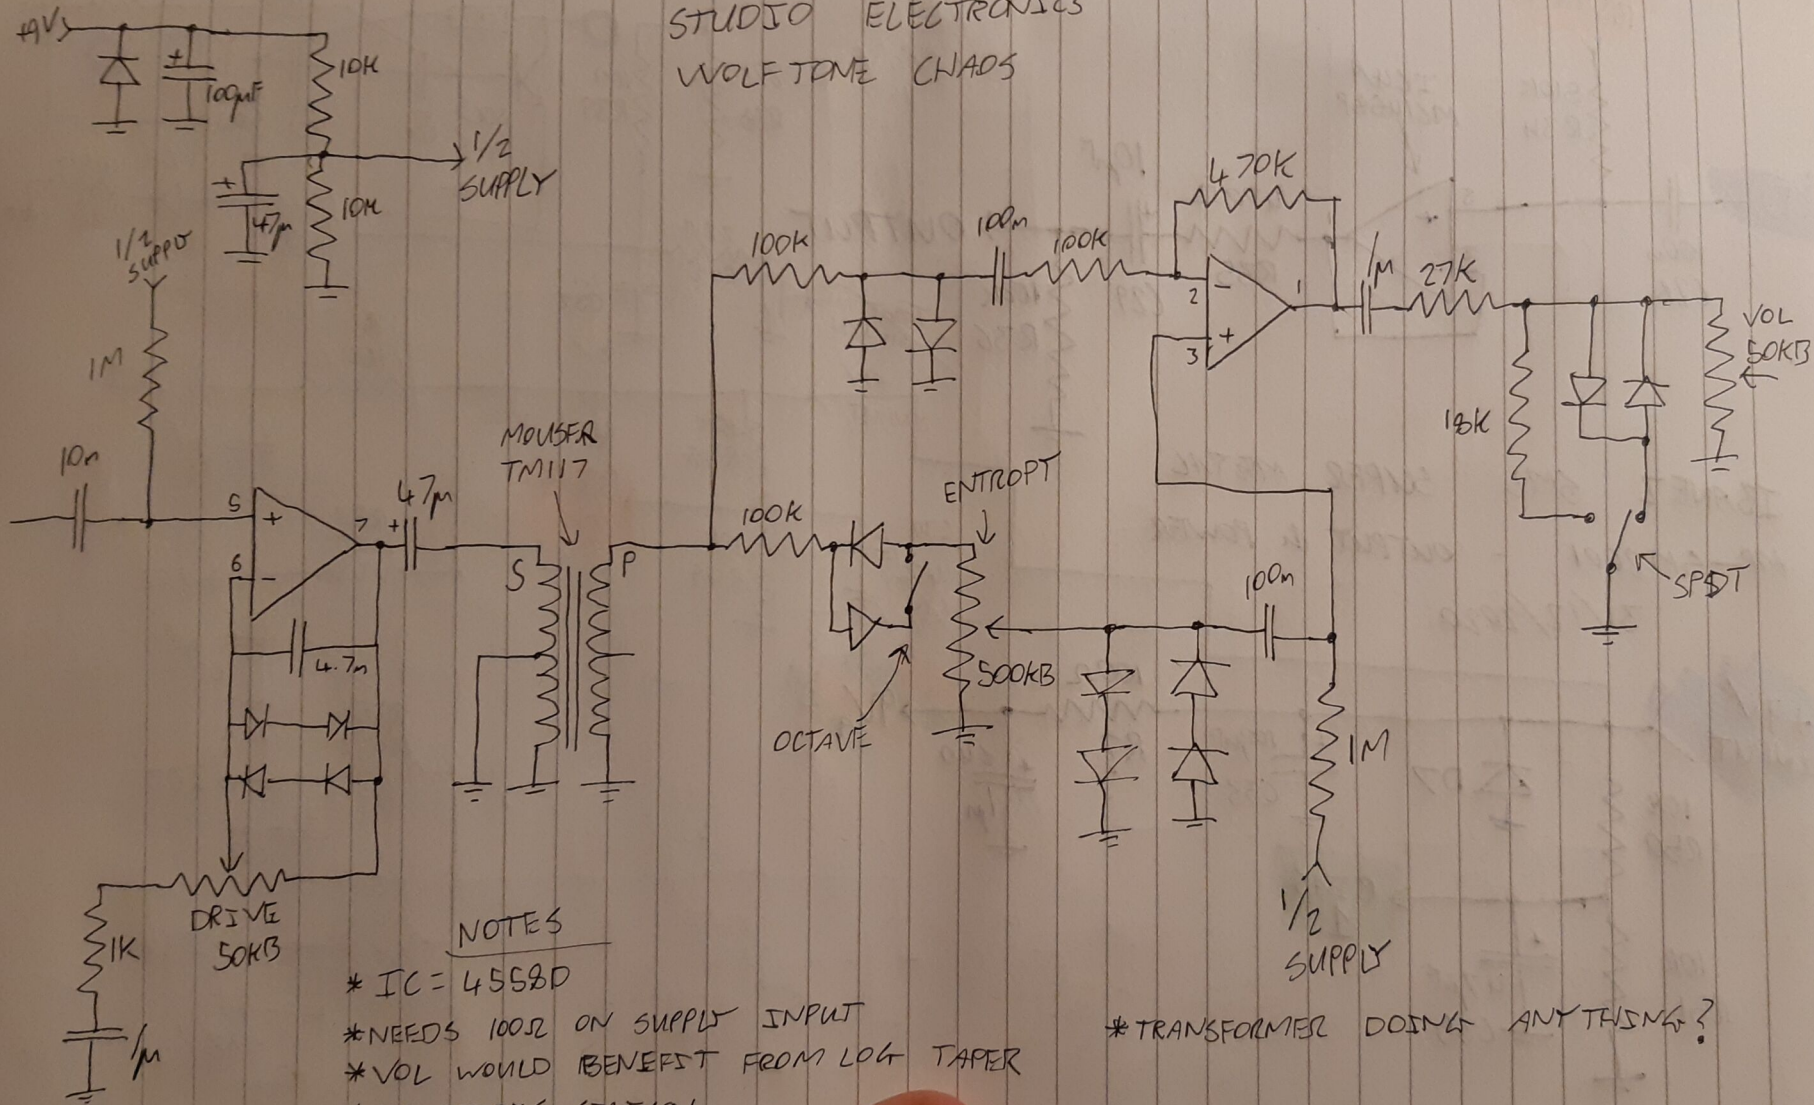 STUDIO ELECTRONICS
WOLFTONE CHAOS
+9V
100µF
10K
1/2
SUPPLY
47µ
10K
1/2
SUPPLY
1M
10n
5
+
7
6
-
47µ
4.7n
DRIVE
50KB
1K
1µ
MOUSER
TM117
S
P
100K
100n
100K
470K
2
-
1
3
+
1µ
27K
VOL
50KB
18K
SPDT
100K
ENTROPY
500KB
OCTAVE
100n
1M
1/2
SUPPLY
NOTES
* IC = 4558D
* NEEDS 100Ω ON SUPPLY INPUT
* VOL WOULD BENEFIT FROM LOG TAPER
* TRANSFORMER DOING ANYTHING?